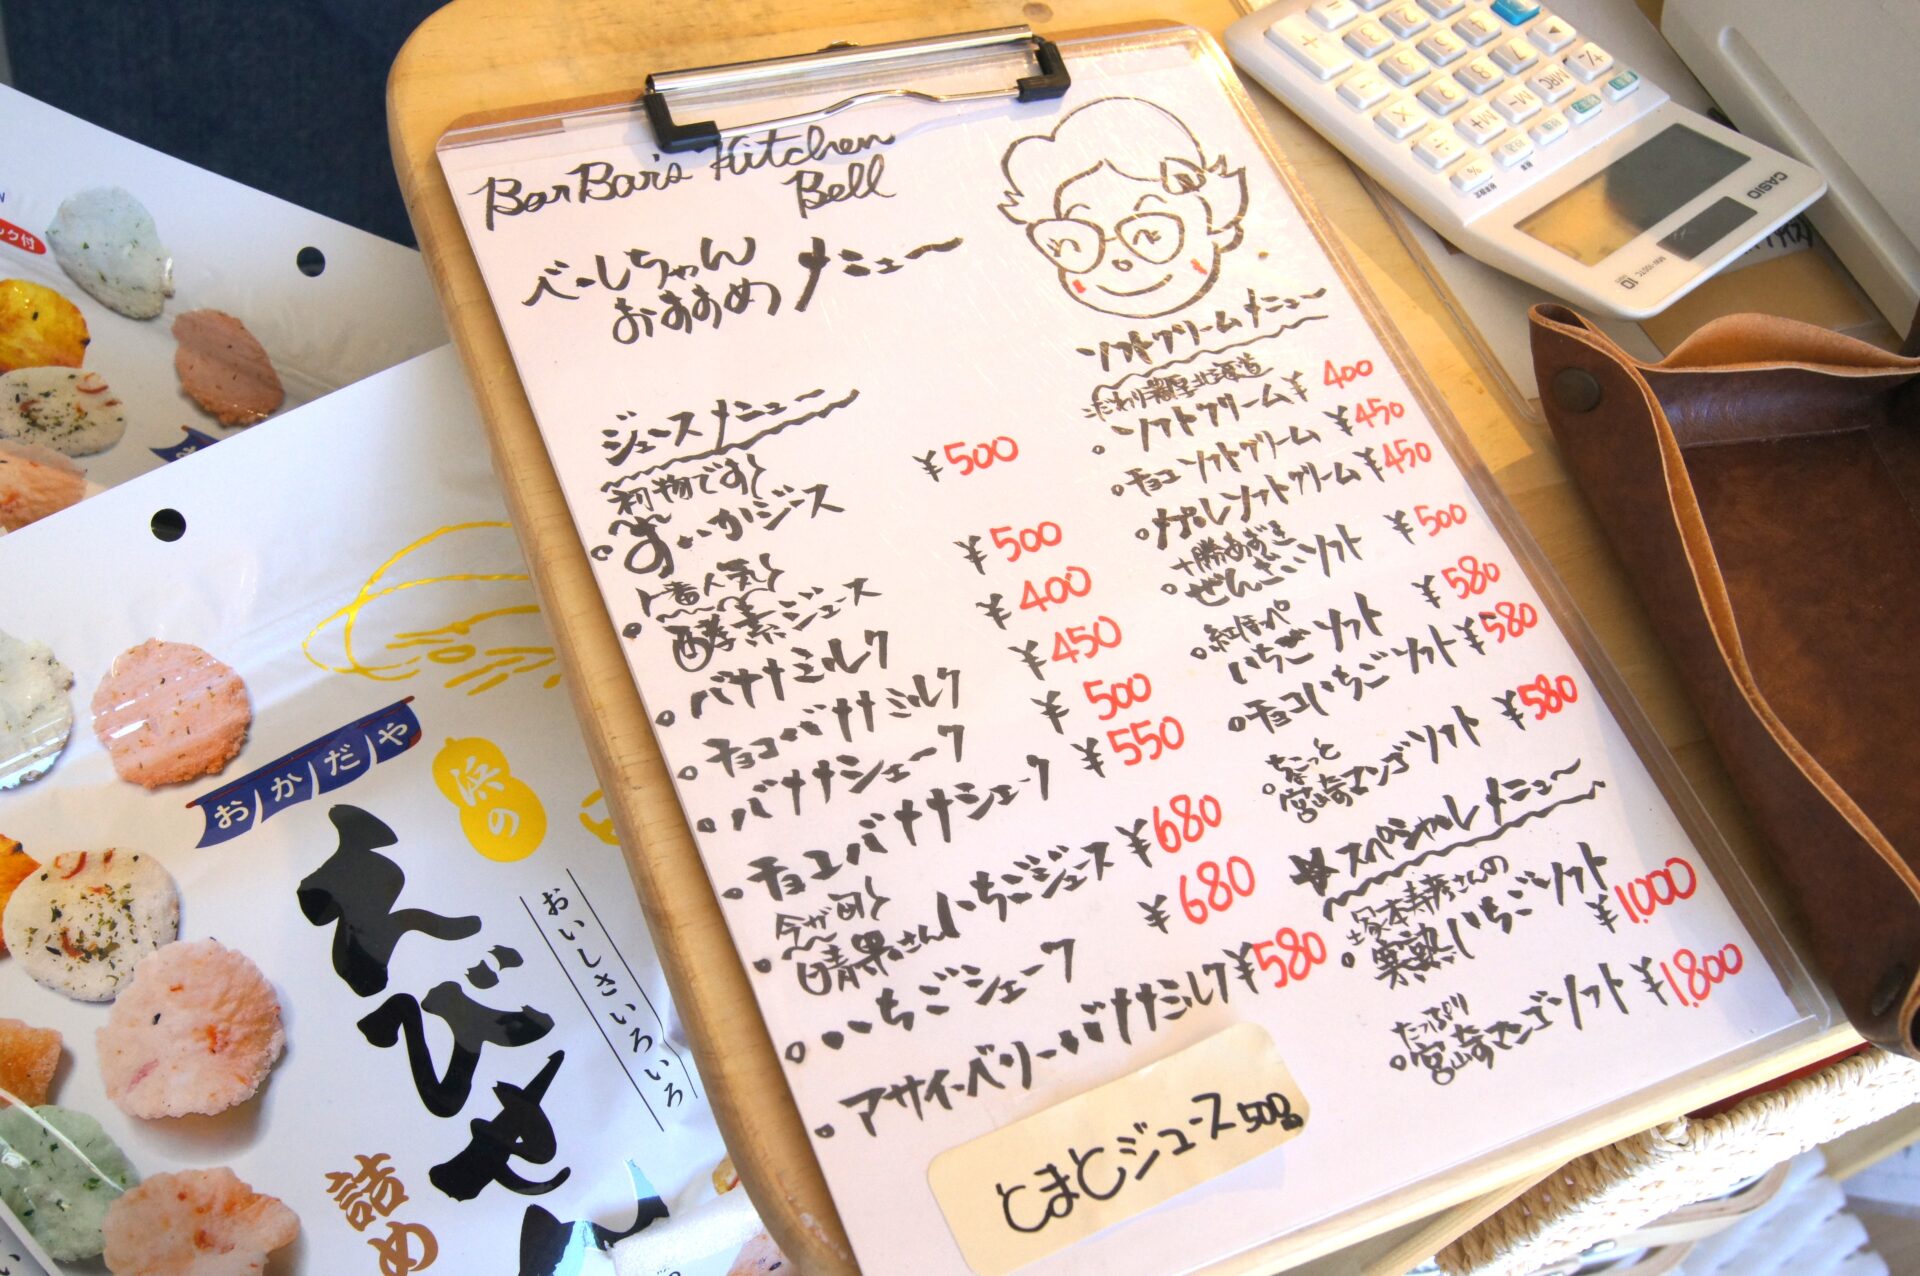 BarBar's Kitchen
Bell
べーしちゃん
おすすめ メニュー
ジュースメニュー
初物です
すいかジース ¥500
一番人気
酵素ジュース ¥500
バナナミルク ¥400
チョコバナナミルク ¥450
バナナシェーク ¥500
チョコバナナシェーク ¥550
今が旬
青果さんいちごジュース ¥680
いちごシェーク ¥680
アサイーベリーバナナミルク ¥580
とまとジュース 500
ソフトクリームメニュー
こだわり濃厚北海道
ソフトクリーム ¥400
チョコソフトクリーム ¥450
ソフトクリーム ¥450
十勝あずき
ぜんざいソフト ¥500
紅ほっぺ
いちごソフト ¥580
チョコいちごソフト ¥580
ちょこっと
宮崎マンゴソフト ¥580
スペシャルメニュー
塚本寿彦さんの
完熟いちごソフト ¥1,000
たっぷり
宮崎マンゴソフト ¥1,800
おかだや
浜の
えびせん
おいしさいろいろ
詰め
ック付
CASIO
MRC
M-
M+
10